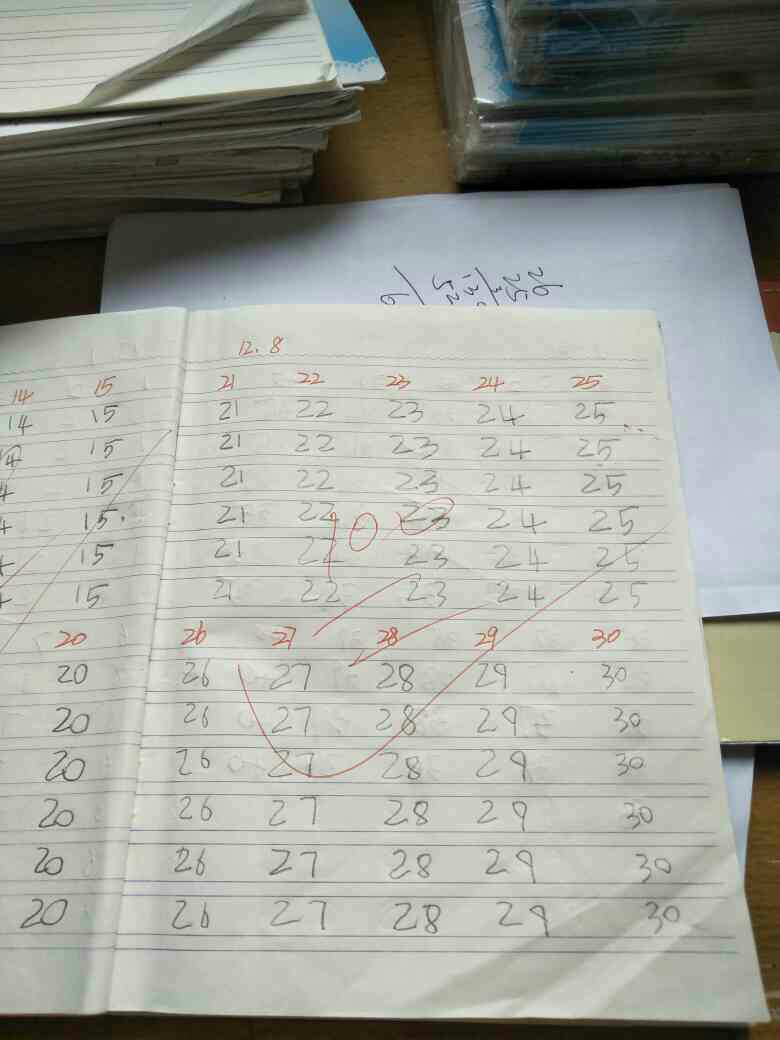 26
25
12.8
14 15 21 22 23 24 25
14 15 21 22 23 24 25
14 15 21 22 23 24 25
4 15 21 22 23 24 25
4 15 21 22 23 24 25
4 15 21 22 23 24 25
4 15 21 22 23 24 25
20 26 27 28 29 30
20 26 27 28 29 30
20 26 27 28 29 30
20 26 27 28 29 30
20 26 27 28 29 30
20 26 27 28 29 30
20 26 27 28 29 30